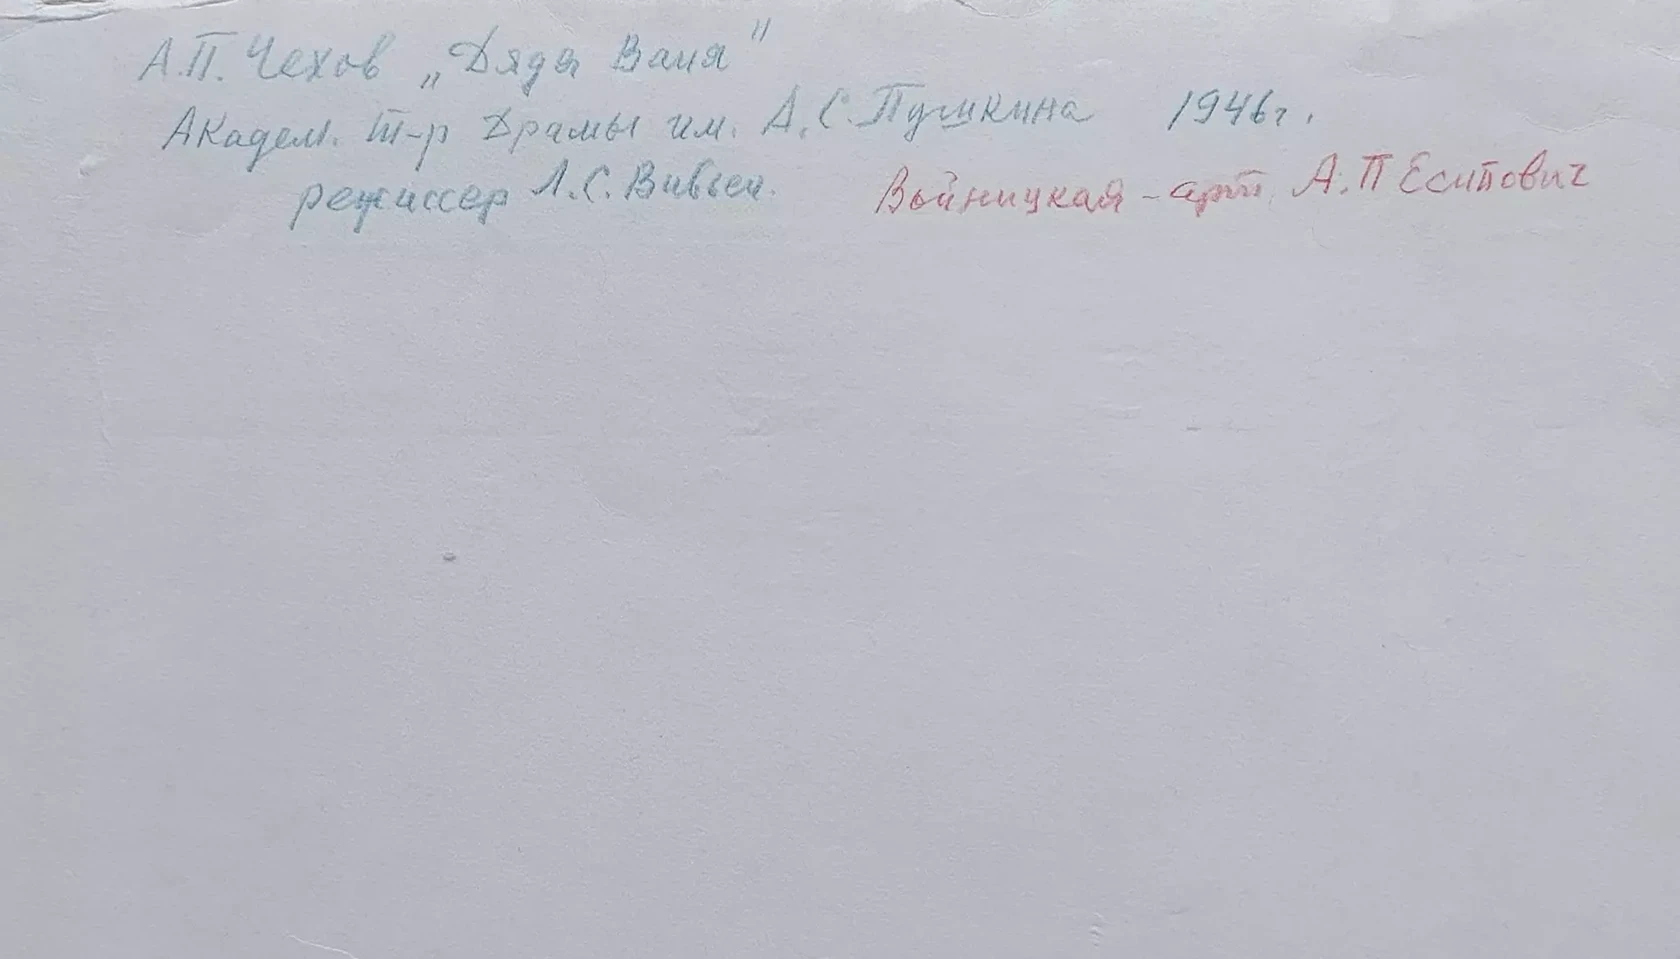 А.П. Чехов „Дядя Ваня"
Академ. т-р Драмы им. А.С. Пушкина 1946г.
режиссер Л.С. Вивьен. Войницкая - арт. А.П Есипович